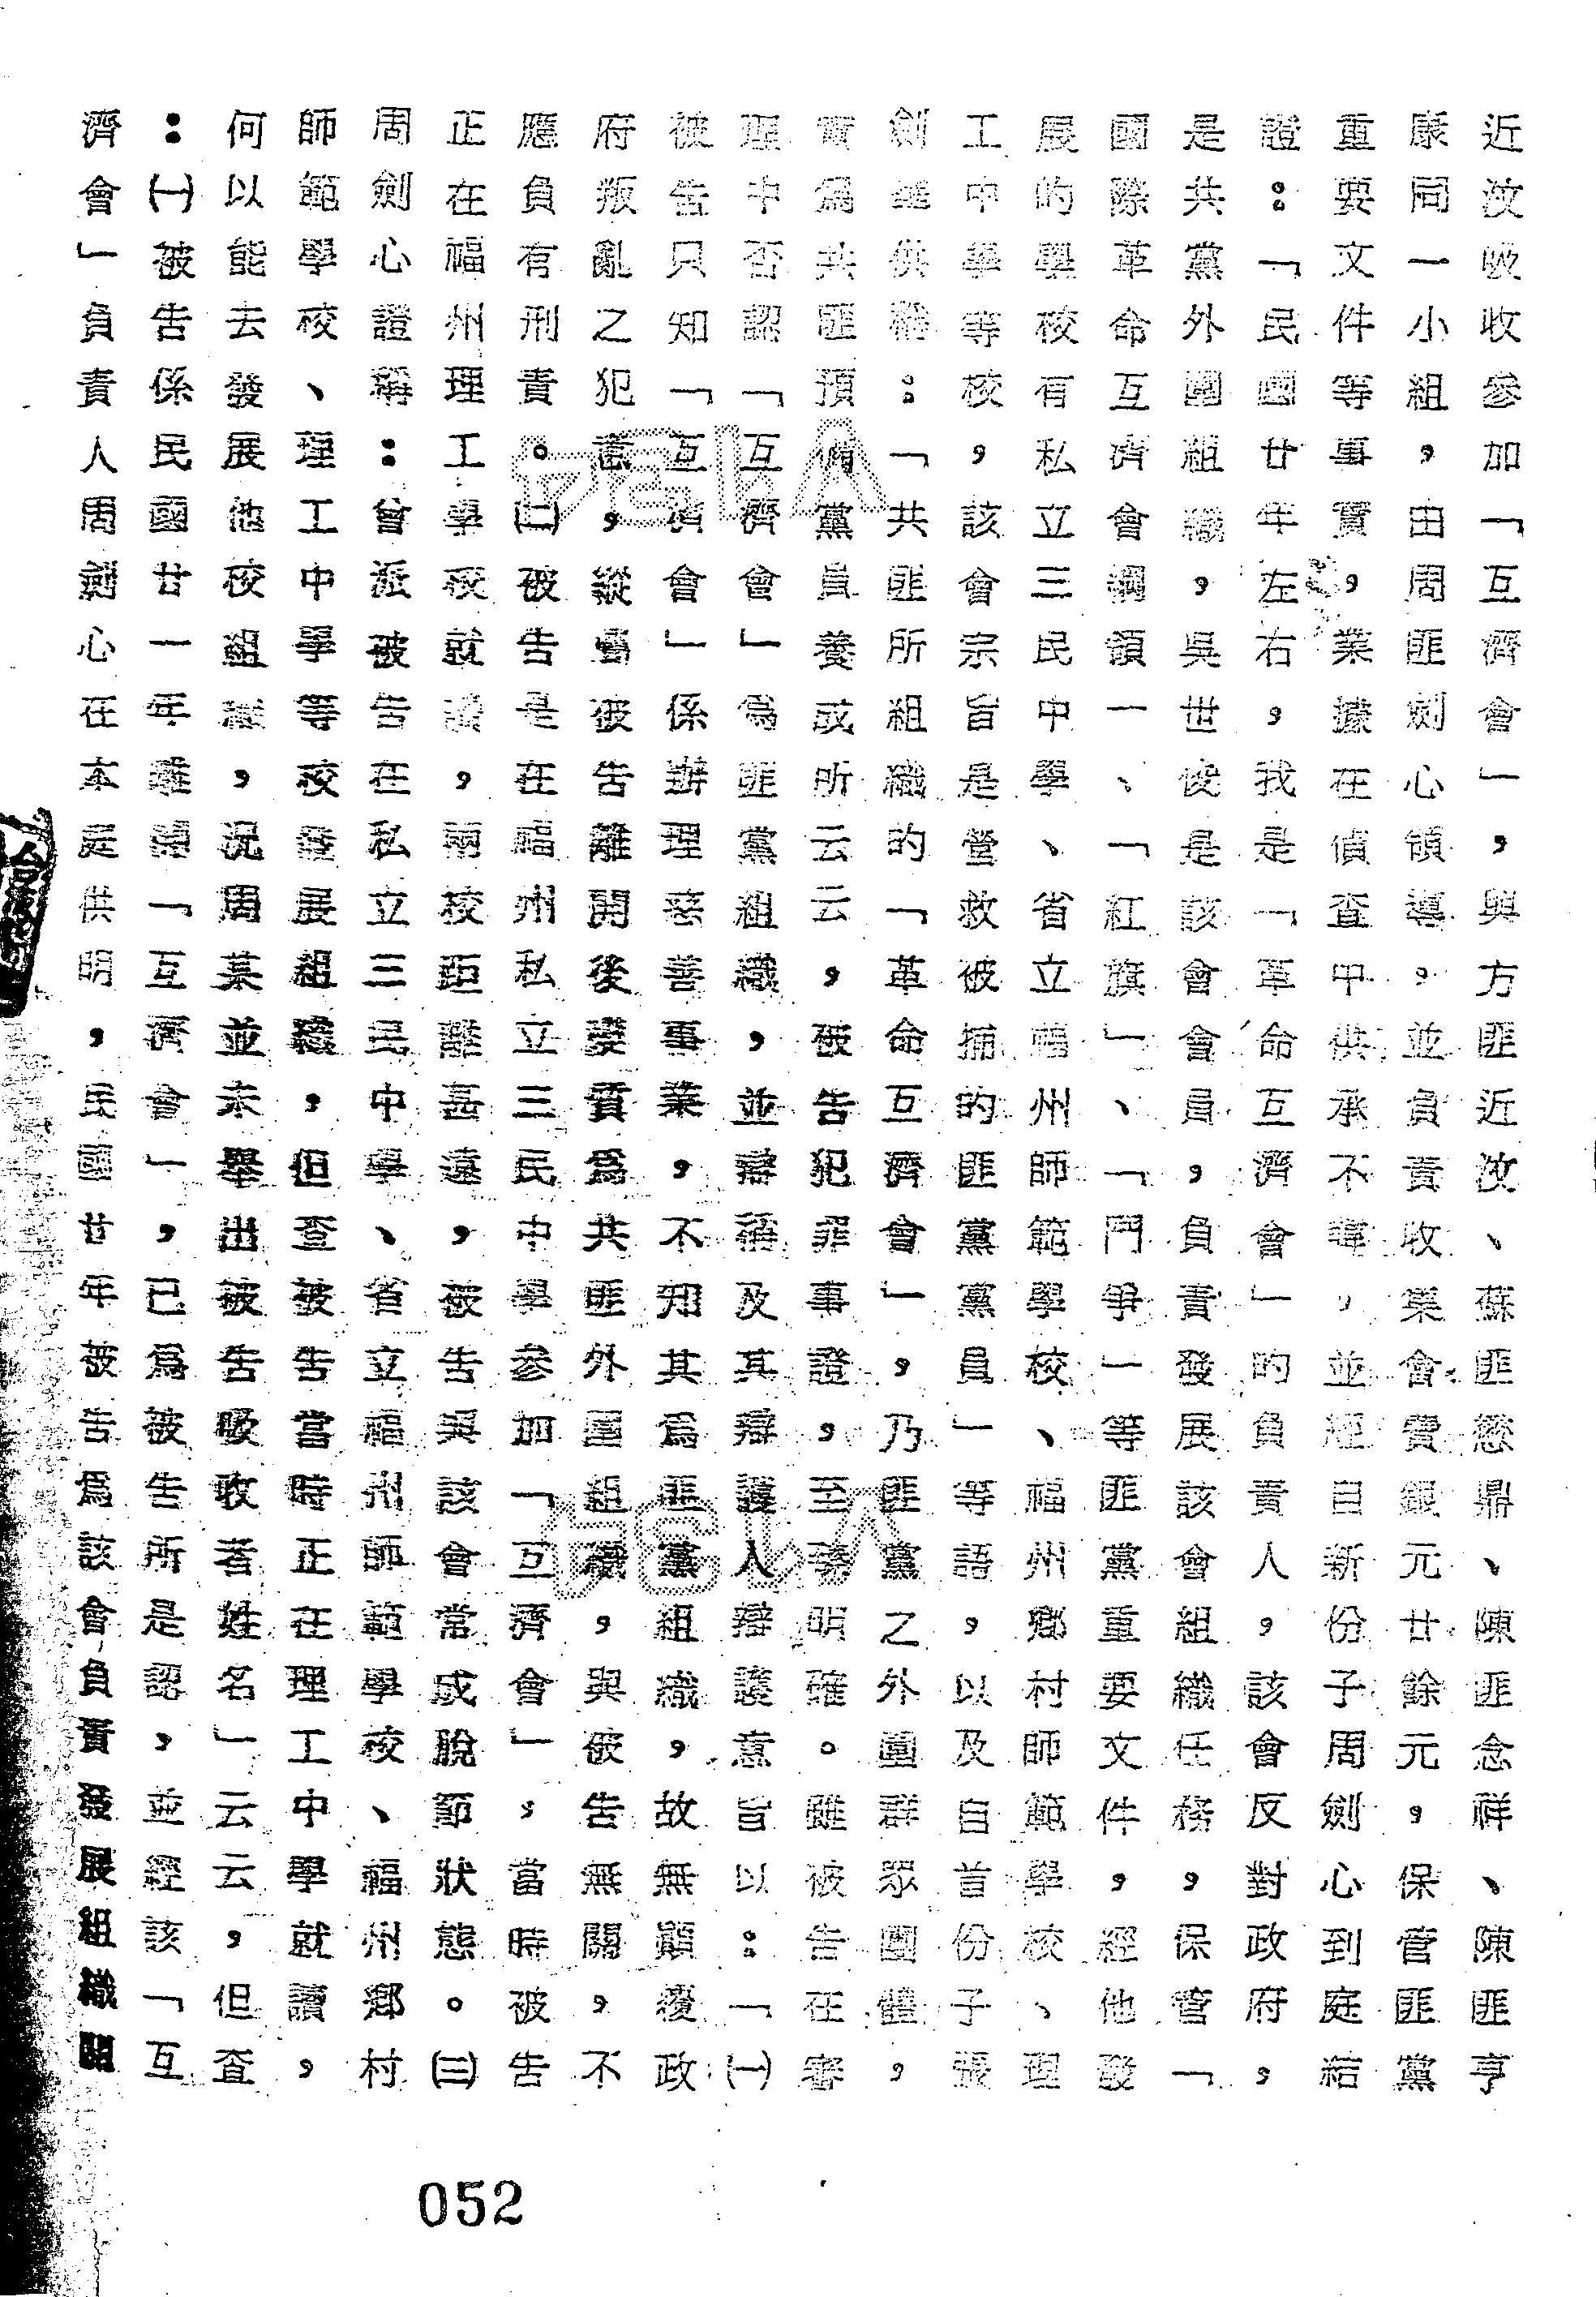 近汶吸收參加「互濟會」,與方匪近汶、蘇匪懋鼎、陳匪念祥、陳匪亨
康同一小組,由周匪劍心領導,並負責收集會費銀元廿餘元,保管匪黨
重要文件等事實,業據在偵查中供承不諱,並經自新份子周劍心到庭結
證:「民國廿年左右,我是「革命互濟會」的負責人,該會反對政府,
是共黨外圍組織,吳世俊是該會會員,負責發展該會組織任務,保管「
國際革命互濟會綱領」、「紅旗」、「鬥爭」等匪黨重要文件,經他發
展的學校有私立三民中學、省立福州師範學校、福州鄉村師範學校、理
工中學等校,該會宗旨是營救被捕的匪黨黨員」等語,以及自首份子張
劍華供稱:「共匪所組織的「革命互濟會」,乃匪黨之外圍群眾團體,
實為共匪預備黨員養成所」云云,被告犯罪事證,至臻明確。雖被告在審
理中否認「互濟會」為匪黨組織,並辯稱及其辯護人辯護意旨以:「㈠
被告只知「互濟會」係辦理慈善事業,不知其為匪黨組織,故無顛覆政
府叛亂之犯意,縱屬被告離開後變質為共匪外圍組織,與被告無關,不
應負有刑責。㈡被告是在福州私立三民中學參加「互濟會」,當時被告
正在福州理工學校就讀,兩校距離甚遠,被告與該會常成脫節狀態。㈢
周劍心證稱:曾派被告在私立三民中學、省立福州師範學校、福州鄉村
師範學校、理工中學等校發展組織,但查被告當時正在理工中學就讀,
何以能去發展他校組織,況周某並未舉出被告吸收者姓名」云云,但查
:㈠被告係民國廿一年離開「互濟會」,已為被告所是認,並經該「互
濟會」負責人周劍心在本庭供明,民國廿年被告為該會負責發展組織
052